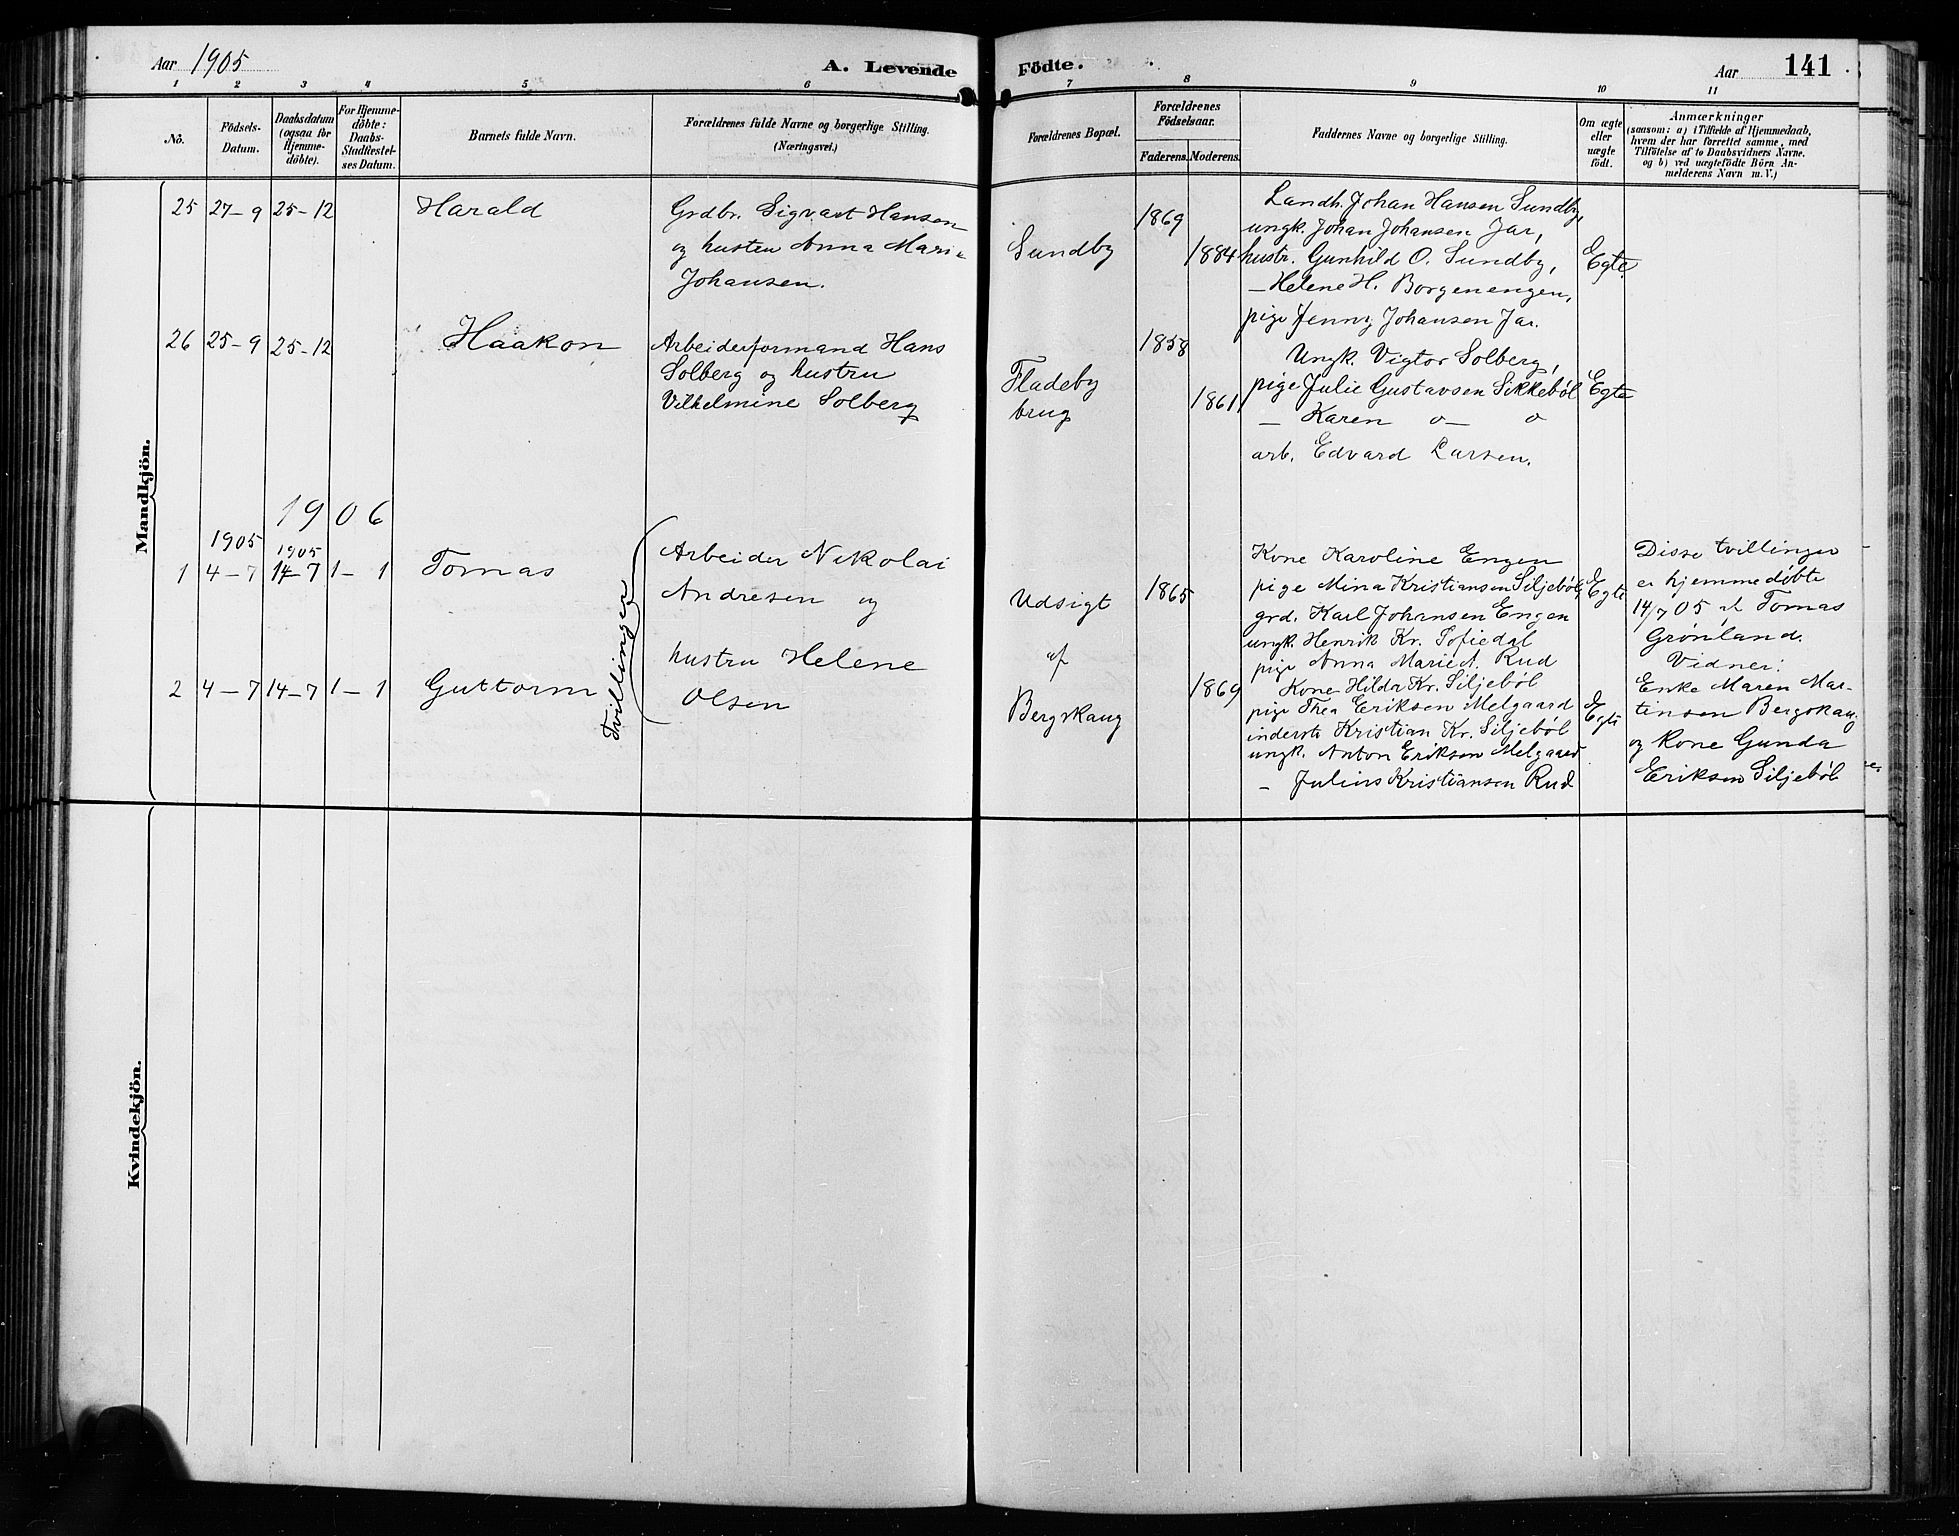 Aar 1905
A. Levende Födte.
Aar
141
1 2 3 4 5 6 7 8 9 10 11
No.
Födsels-
Datum.
Daabsdatum
(ogsaa for
Hjemme-
döbte).
For Hjemme-
döbte:
Daabs-
Stadfæstel-
ses Datum.
Barnets fulde Navn.
Forældrenes fulde Navne og borgerlige Stilling.
(Næringsvei.)
Forældrenes Bopæl.
Forældrenes
Födselsaar.
Faderens. Moderens.
Faddernes Navne og borgerlige Stilling.
Om ægte
eller
uægte
födt.
Anmærkninger
(saasom: a) i Tilfælde af Hjemmedaab,
hvem der har forrettet samme, med
Tilföielse af to Daabsvidners Navne.
og b) ved uægtefödte Börn An-
melderens Navn m. V.)
Mandkjön.
25 27-9 25-12
Harald
Grdbr. Sigvart Hansen
og hustru Anna Marie
Johansen.
Sundby
1869
1884
Landh. Johan Hansen Sundby,
ungk. Johan Johansen Jar,
hustr. Gunhild O. Sundby,
— Helene H. Borgenengen,
pige Jenny Johansen Jar.
Egte
26 25-9 25-12
Haakon
Arbeiderformand Hans
Solberg og hustru
Vilhelmine Solberg
Fladeby
brug
1858
1861
Ungk. Vigtor Solberg,
pige Julie Gustavsen Sikkebøl
— Karen o— o
arb. Edvard Larsen.
Egte
1906
1905 1905
1 4-7 14-7 1-1
Tomas
Tvillinger
Arbeider Nikolai
Andresen og
hustru Helene
Olsen
Udsigt
af
Bergskaug
1865
1869
Kone Karoline Engen
pige Mina Kristiansen Siljebøl,
grd. Karl Johansen Engen
ungk. Henrik Kr. Sofiedal
pige Anna Marie A. Rud
Egte
2 4-7 14-7 1-1
Guttorm
Kone Hilda Kr. Siljebøl
pige Thea Eriksen Melgaard
inderste Kristian Kr. Siljebøl
ungk. Anton Eriksen Melgaard
— Julius Kristiansen Rud
Egte
Disse tvillinger
er hjemmedøbte
14/7 05 af Tomas
Grønland.
Vidner:
Enke Maren Mar-
tinsen Bergskaug
og Kone Gunda
Eriksen Siljebøl
Kvindekjön.